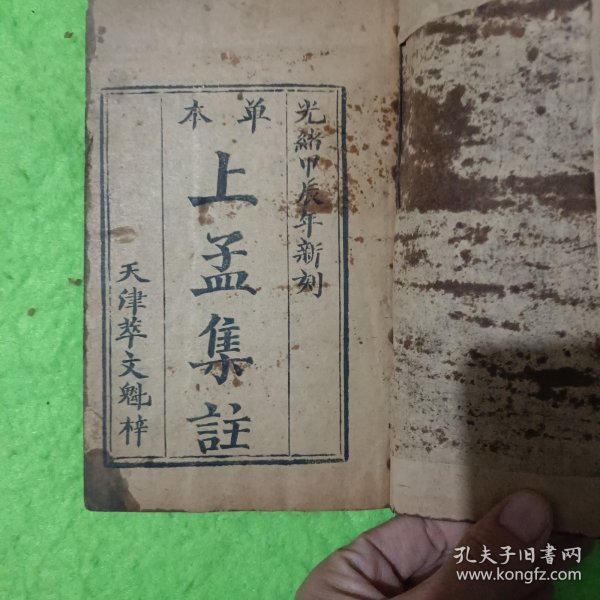 光緒甲辰年新刻
单本
上孟集註
天津萃文魁梓
孔夫子旧书网
www.kongfz.com